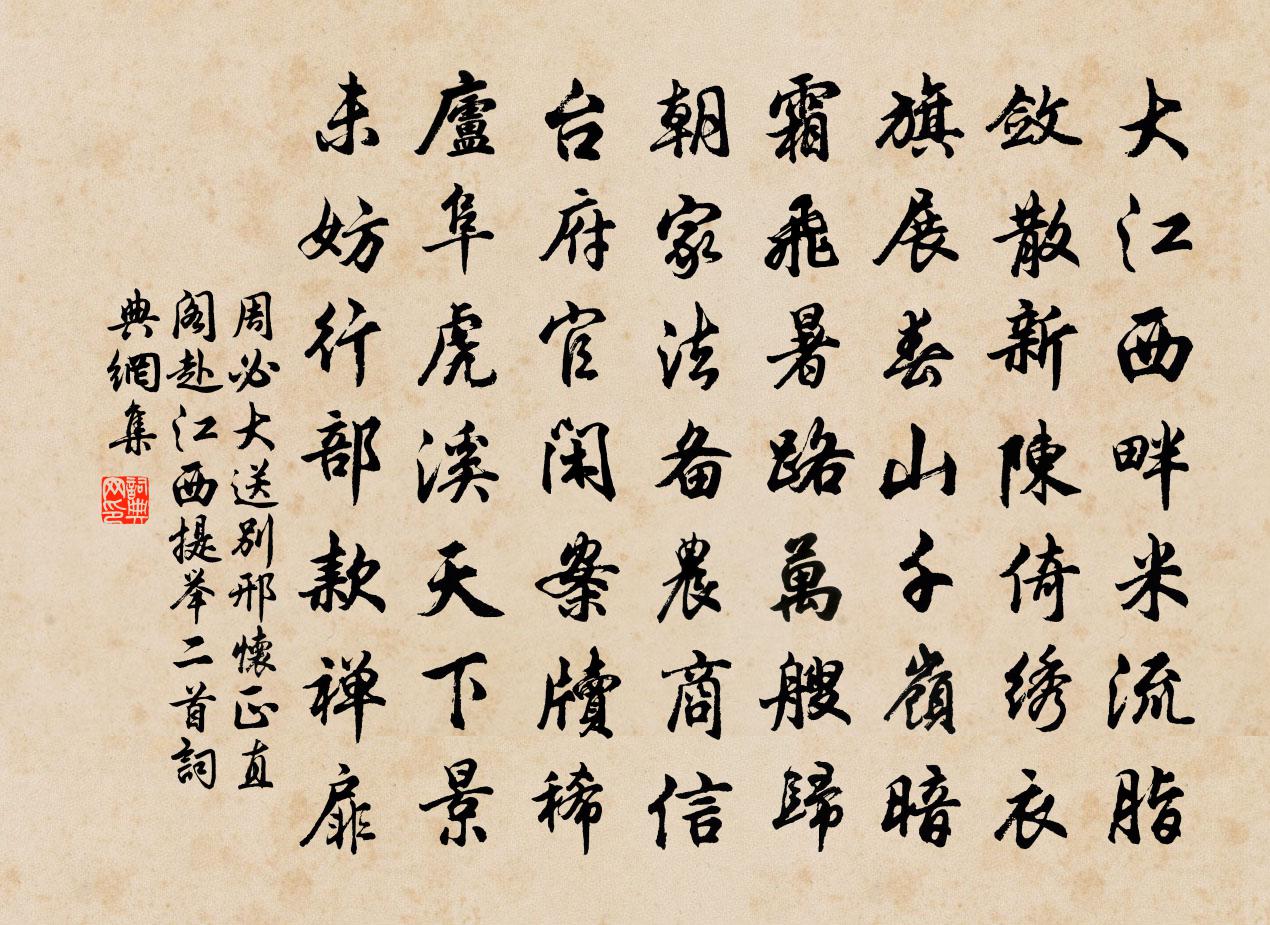 大江西畔米流脂
斂散新陳倚绣衣
旗展春山千嶺暗
霜飛暑路萬艘歸
朝家法备農商信
台府官閑案牘稀
廬阜虎溪天下景
未妨行部款禅扉
周必大送别邢懷正直
阁赴江西提举二首詞
典網集
詞典网印